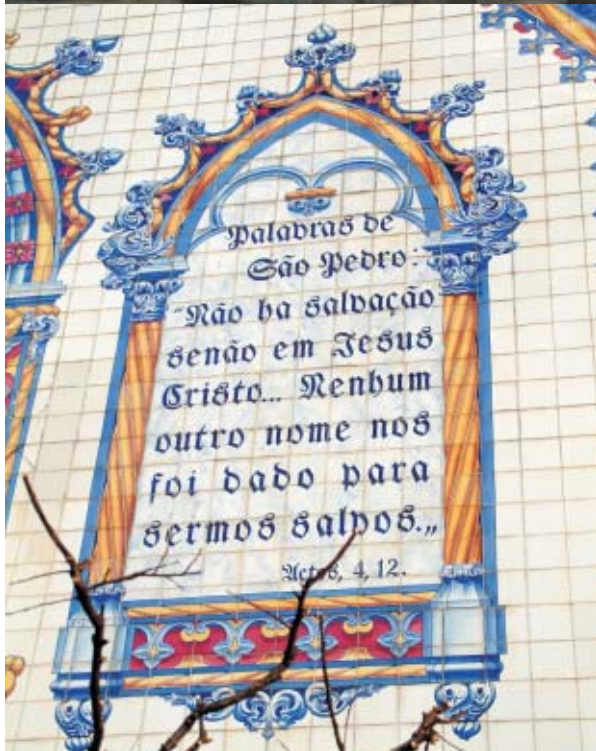 Palavras de
São Pedro:
"Não ha salvação
senão em Jesus
Cristo... Nenhum
outro nome nos
foi dado para
sermos salvos.„
Actos, 4, 12.